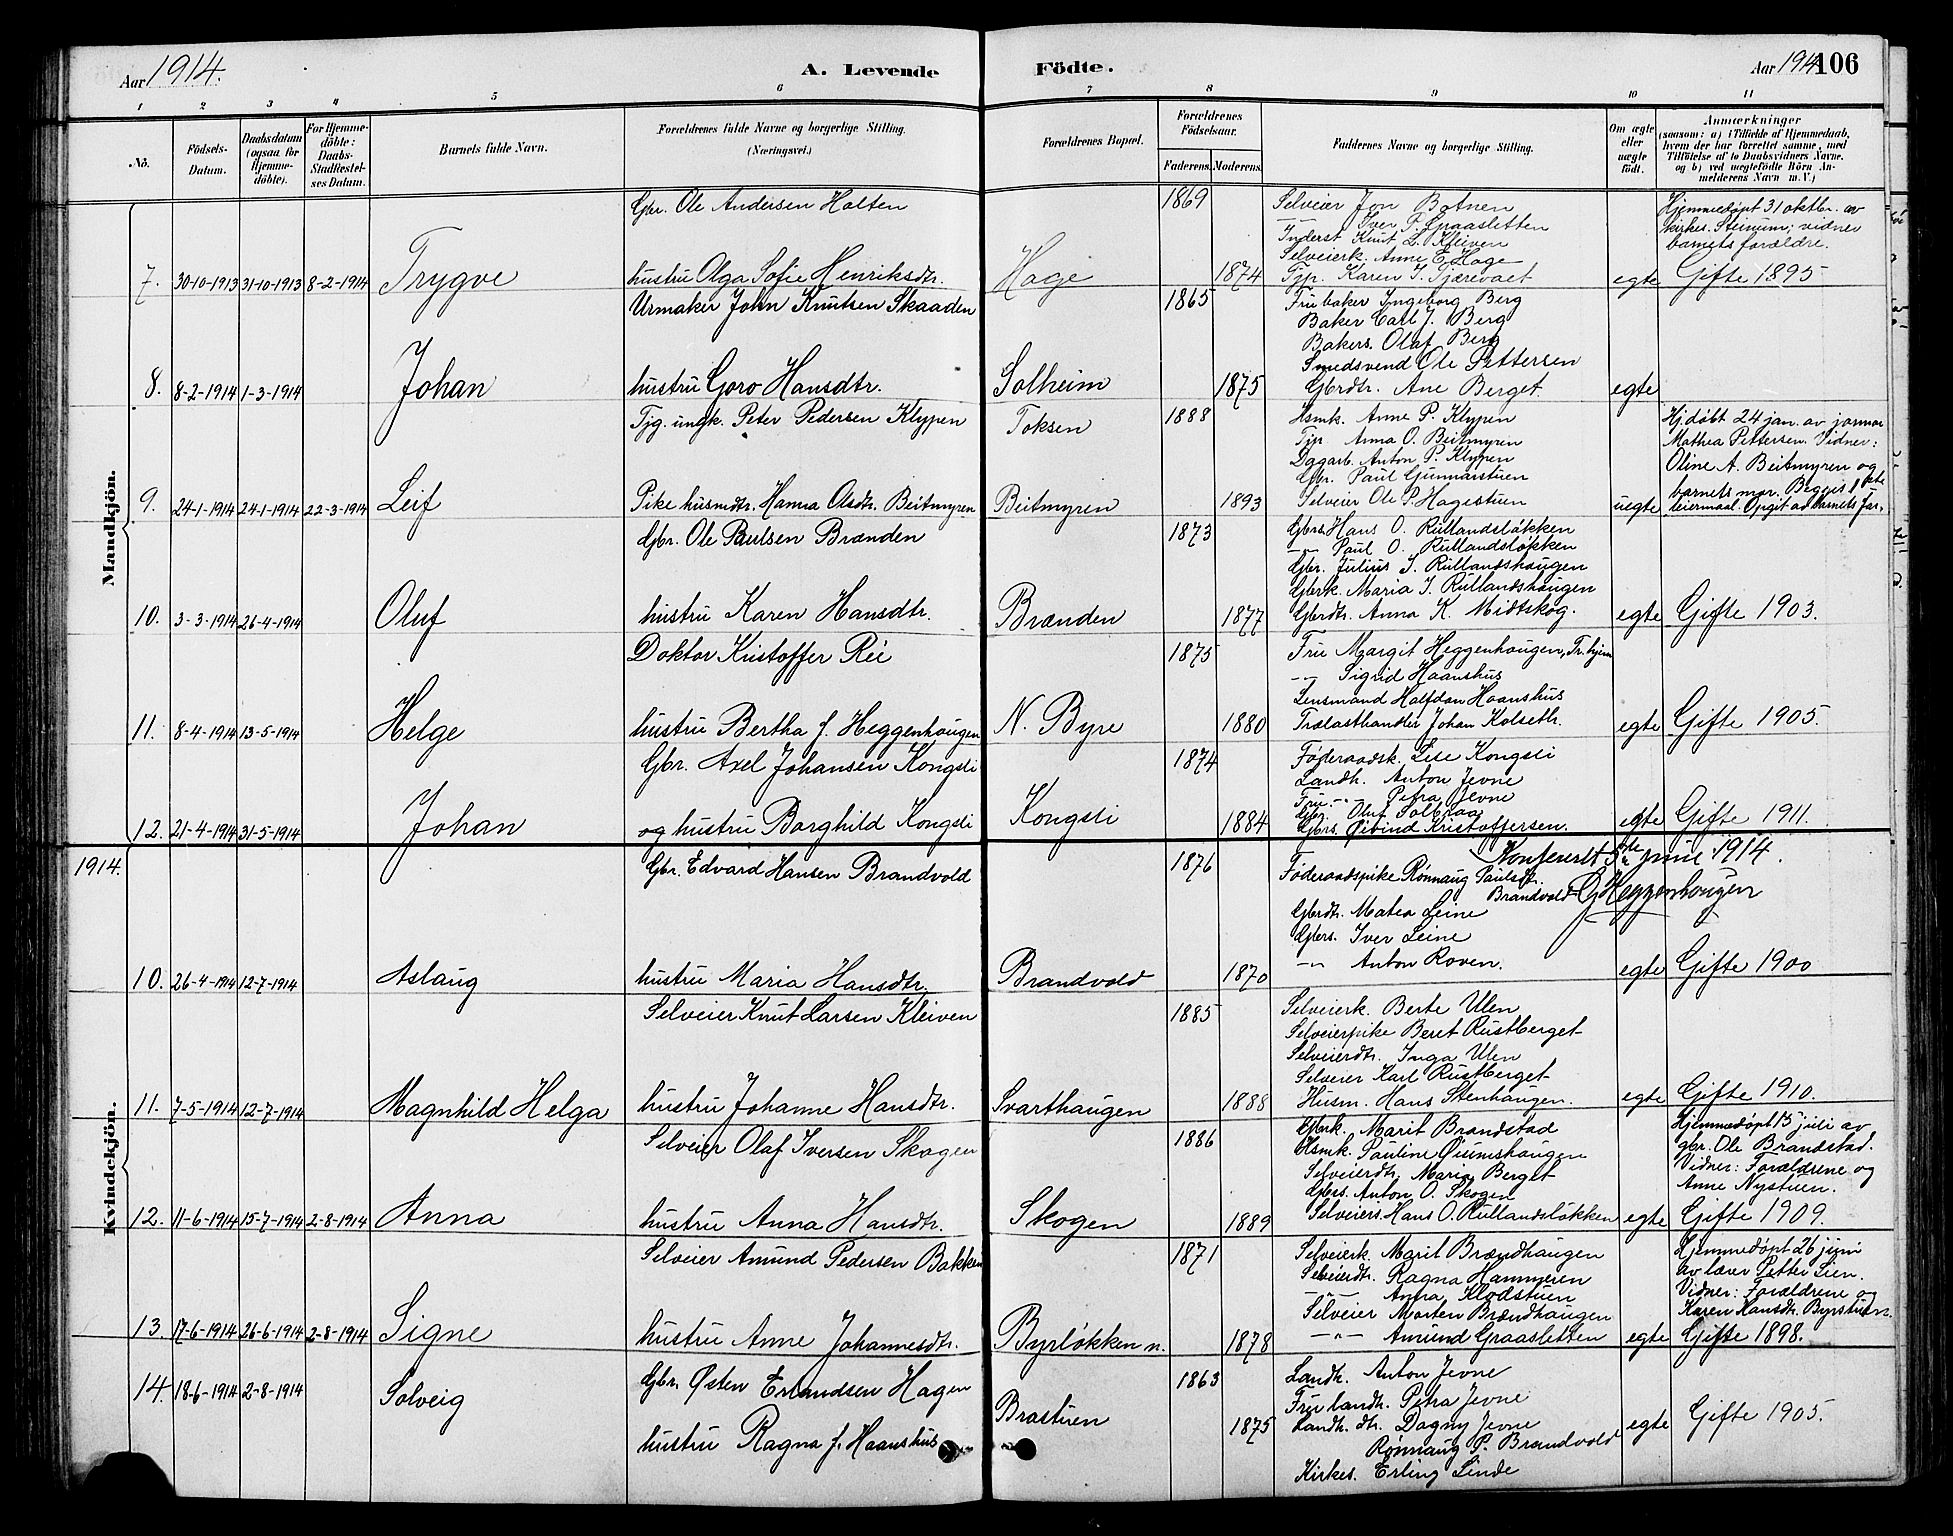 Aar 1914.
A. Levende Födte.
Aar 1914
106
1 2 3 4 5 6 7 8 9 10 11
No.
Födsels-Datum.
Daabsdatum (ogsaa for Hjemme-döbte).
For Hjemme-döbte: Daabs-Stadfæstel-ses Datum.
Barnets fulde Navn.
Forældrenes fulde Navne og borgerlige Stilling. (Næringsvei.)
Forældrenes Bopæl.
Forældrenes Födselsaar.
Faderens. Moderens.
Faddernes Navne og borgerlige Stilling.
Om ægte eller uægte födt.
Anmærkninger
(saasom: a) i Tilfælde af Hjemmedaab,
hvem der har forrettet samme, med
Tilföielse af to Daabsvidners Navne.
og b) ved uægtefödte Börn An-
melderens Navn m. V.)
Mandkjön.
Gbr. Ole Andersen Holten
1869
Selveier Jon Botnen
-"- Iver P. Graasletten
Inderst Knut L. Kleiven
Selveierk. Anne E. Hage
Hjemmedøpt 31 oktbr. av
kirkes. Steinum; vidner
barnets forældre.
7. 30-10-1913 31-10-1913 8-2-1914 Trygve
hustru Olga Sofie Henriksdtr.
Hage 1874
Tjp. Karen I. Tjærevaet
egte Gifte 1895
Urmaker John Knutsen Skaaden
1865
Fru baker Ingeborg Berg
Baker Carl J. Berg
Bakers. Olaf Berg
Smedsvend Ole Pettersen
8. 8-2-1914 1-3-1914 Johan
hustru Goro Hansdtr.
Solheim 1875
Gbrdtr. Ane Berget
egte
Tjg. ungk. Peter Pedersen Klypen
Toksen 1888
Hsmk. Anne P. Klypen
Tjp. Anna O. Beitmyren
Dagarb. Anton P. Klypen
Gbr. Paul Gunnarstuen
Hj.døbt 24 jan. av jormor
Mathea Pettersen. Vidner:
Oline A. Beitmyren og
barnets mor. Begges 1ste
leiermaal. Opgit av barnets far.
9. 24-1-1914 24-1-1914 22-3-1914 Leif
Pike husmdtr. Hanna Olsdtr. Beitmyren
Beitmyren 1893
Selveier Ole P. Hagestuen
uegte
Gbr. Ole Paulsen Brænden
1873
Gbrs. Hans O. Rullandsløkken
-"- Paul O. Rullandsløkken
Gbr. Julius I. Rullandshaugen
Gbrk. Maria I. Rullandshaugen
10. 3-3-1914 26-4-1914 Oluf
hustru Karen Hansdtr.
Brænden 1877
Gbrdtr. Anna K. Midtskog.
egte Gifte 1903.
Doktor Kristoffer Rei
1875
Fru Margit Heggenhougen, Tr.hjem
-"- Sigrid Haanshus
Lensmand Halfdan Haanshus
11. 8-4-1914 13-5-1914 Helge
hustru Bertha f. Heggenhougen
N. Byre 1880
Trælasthandler Johan Kolseth.
egte Gifte 1905.
Gbr. Axel Johansen Kongsli
1874
Føderaadsk. Lise Kongsli
Landh. Anton Jevne
Fru -"- Petra Jevne
Gbr. Oluf Solbraa
12. 21-4-1914 31-5-1914 Johan
og hustru Borghild Kongsli
Kongsli 1884
Gbrs. Øivind Kristoffersen.
egte Gifte 1911.
1914.
Kvindekjön.
Konfereret 5te juni 1914.
G Heggenhougen
Gbr. Edvard Hansen Brandvold
1876
Føderaadspike Rønnaug Paulsdtr.
Brandvold
Gbrdtr. Matea Leine
Gbrs. Iver Leine
10. 26-4-1914 12-7-1914 Aslaug
hustru Maria Hansdtr.
Brandvold 1870
-"- Anton Roven.
egte Gifte 1900
Selveier Knut Larsen Kleiven
1885
Selveierk. Berte Ulen
Selveierpike Beret Rustberget
Selveierdtr. Inga Ulen
Selveier Karl Rustberget
11. 7-5-1914 12-7-1914 Magnhild Helga
hustru Johanne Hansdtr.
Svarthaugen 1888
Husm. Hans Stenhaugen.
egte Gifte 1910.
Selveier Olaf Iversen Skogen
1886
Gbrk. Marit Brandstad
Hsmk. Pauline Øiumshaugen
Selveierdtr. Maria Berget
Gbrs. Anton O. Skogen
Hjemmedøpt 15 juli av
gbr. Ole Brandstad.
Vidner: Forældrene og
Anne Nystuen.
12. 11-6-1914 15-7-1914 2-8-1914 Anna
hustru Anna Hansdtr.
Skogen 1889
Selveiers. Hans O. Rullandsløkken
egte Gifte 1909.
Selveier Amund Pedersen Bakken
1871
Selveierk. Marit Brændhaugen
Selveierdtr. Ragna Hammeren
-"- Anna Klodstuen
Selveier Morten Brændhaugen
Hjemmedøpt 26 juni
av lærer Petter Lien.
Vidner: Forældrene og
Karen Hansdtr. Byrstuen
13. 17-6-1914 26-6-1914 2-8-1914 Signe
hustru Anne Johannesdtr.
Byrløkken n. 1878
-"- Amund Graasletten
egte Gifte 1898.
14. 18-6-1914 2-8-1914 Solveig
Gbr. Østen Erlandsen Hagen
hustru Ragna f. Haanshus
Brastuen 1863 1875
Landh. Anton Jevne
Fru landh. Petra Jevne
Landh. dtr. Dagny Jevne
Rønnaug P. Brandvold
Kirkes. Erling Linde
egte Gifte 1905.